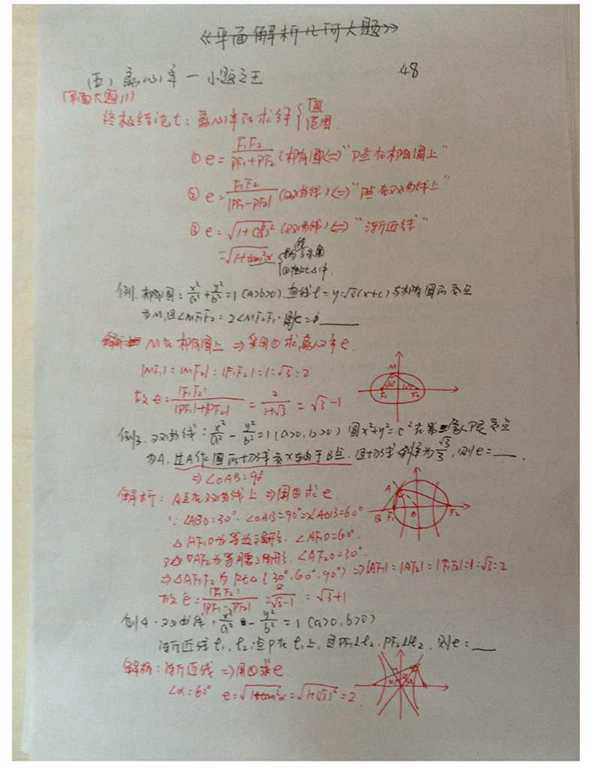 《平面解析几何大题》
(五)离心率一小题之王 48
(平面大题11)
终极结论七:离心率的求解{值 范围
① e = F₁F₂/(PF₁+PF₂) (椭圆)(⇔) "P点在椭圆上"
② e = F₁F₂/|PF₁-PF₂| (双曲线) (⇔) "P点在双曲线上"
③ e = √(1+(b/a)²) (双曲线) ⇔ "渐近线"
= √(1+tan²α)
例1. 椭圆:x²/a²+y²/b²=1 (a>b>0) 直线l=y=√3(x+c)与椭圆的交点
为M,且∠MF₁F₂=2∠MF₂F₁. 则e=____
解析 M在椭圆上 ⇒ 采用①求离心率e.
|MF₁|:|MF₂|:|F₁F₂|=1:√3:2
故e=|F₁F₂|/(|PF₁|+|PF₂|)=2/(1+√3)=√3-1
例3. 双曲线:x²/a²-y²/b²=1(a>0,b>0) 圆x²+y²=c²在第二象限交点
为A,过A作圆的切线与x轴交于B点,且切线斜率为√3/3,则e=____
⇒∠OAB=90°
解析:A点在双曲线上⇒用②求e
∵∠ABO=30°.∠OAB=90°⇒∠AOB=60°
△AF₁O为等边三角形.∠AF₁O=60°
△OAF₂为等腰三角形.∠AF₂O=30°
⇒△AF₁F₂为Rt△(30°.60°.90°)⇒|AF₁|:|AF₂|:|F₁F₂|=1:√3:2
故e=|F₁F₂|/|PF₁-PF₂|=2/(√3-1)=√3+1
例4.双曲线:x²/a²-y²/b²=1(a>0,b>0)
渐近线l₁,l₂,点P在l₁上,且PF₁⊥l₂,PF₂∥l₂,则e=____
解析:渐近线⇒用③求e
∠α=60° e=√(1+tan²α)=√(1+(√3)²)=2